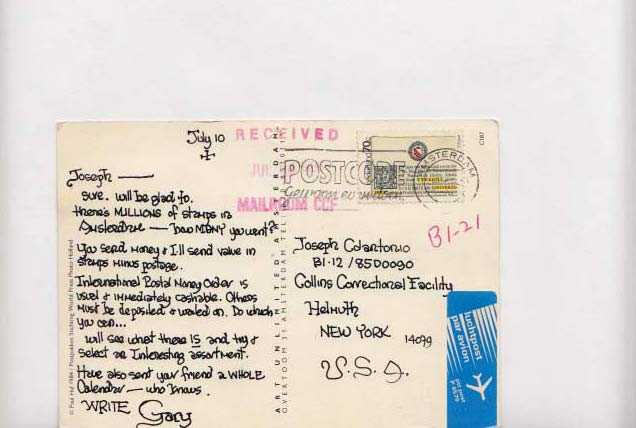 July 10
Joseph —
sure. will be glad to.
there's MILLIONS of stamps in
Amsterdam — how MANY you want?
You send money & I'll send value in
stamps minus postage.
International Postal Money Order is
usual & immediately cashable. Others
must be deposited & waited on. Do which
you can...
will see what there IS and try &
select an interesting assortment.
Have also sent your friend a WHOLE
Calendar — who knows.
WRITE Gary
© Paul Huf 1984 / Postpakken Stichting World Press Photo Holland
ART UNLIMITED AMSTERDAM
OVERTOOM 31 AMSTERDAM
RECEIVED
JUL
MAILROOM CCF
POSTCODE
70
AMSTERDAM
C187
B1-21
Joseph Colantonio
B1-12 / 85D0090
Collins Correctional Facility
Helmuth
NEW YORK 14079
U.S.A.
luchtpost
par avion